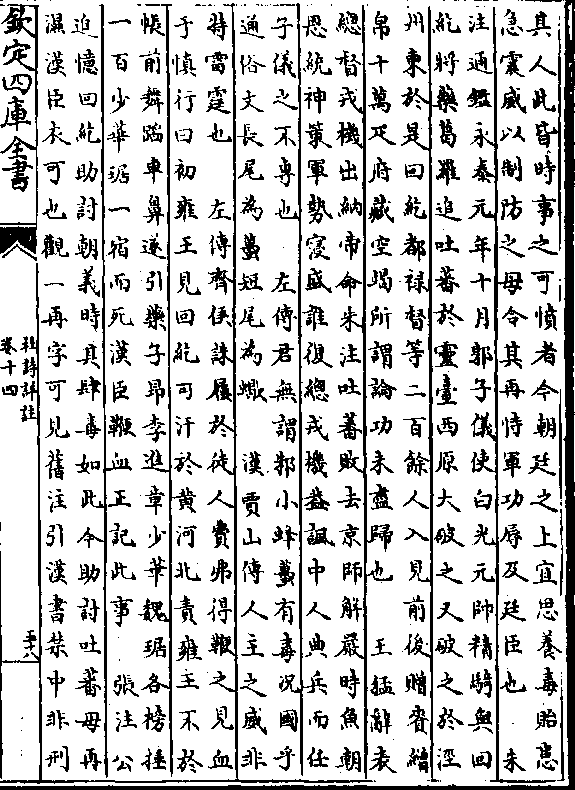 真人此皆時事之可憤者今朝廷之上宜思養毒貽患
急震威以制防之毋令其再恃軍功辱及廷臣也　朱
注通鑑永泰元年十月郭子儀使白光元帥精騎與回
紇將藥葛羅追吐蕃於靈臺西原大破之又破之於涇
州東於是回紇都祿督等二百餘人入見前後贈賚繒
帛十萬疋府藏空竭所謂論功未盡歸也　王猛辭表
總督戎機出納帝命朱注吐蕃敗去京師解嚴時魚朝
恩統神策軍勢寖盛誰復總戎機葢諷中人典兵而任
子儀之不專也　左傳君無謂邾小蜂蠆有毒況國乎
通俗文長尾為蠆短尾為蠍　漢賈山傳人主之威非
特雷霆也　左傳齊侯誅屨於徒人費弗得鞭之見血
于慎行曰初雍王見回紇可汗於黃河北責雍王不於
帳前舞蹈車鼻遂引藥子昂李進章少華魏琚各榜捶
一百少華琚一宿而死漢臣鞭血正記此事　張注公
追憶回紇助討朝義時其肆毒如此今助討吐蕃毋再
濕漢臣衣可也觀一再字可見舊注引漢書禁中非刑
欽定四庫全書
杜詩詳註
卷十四